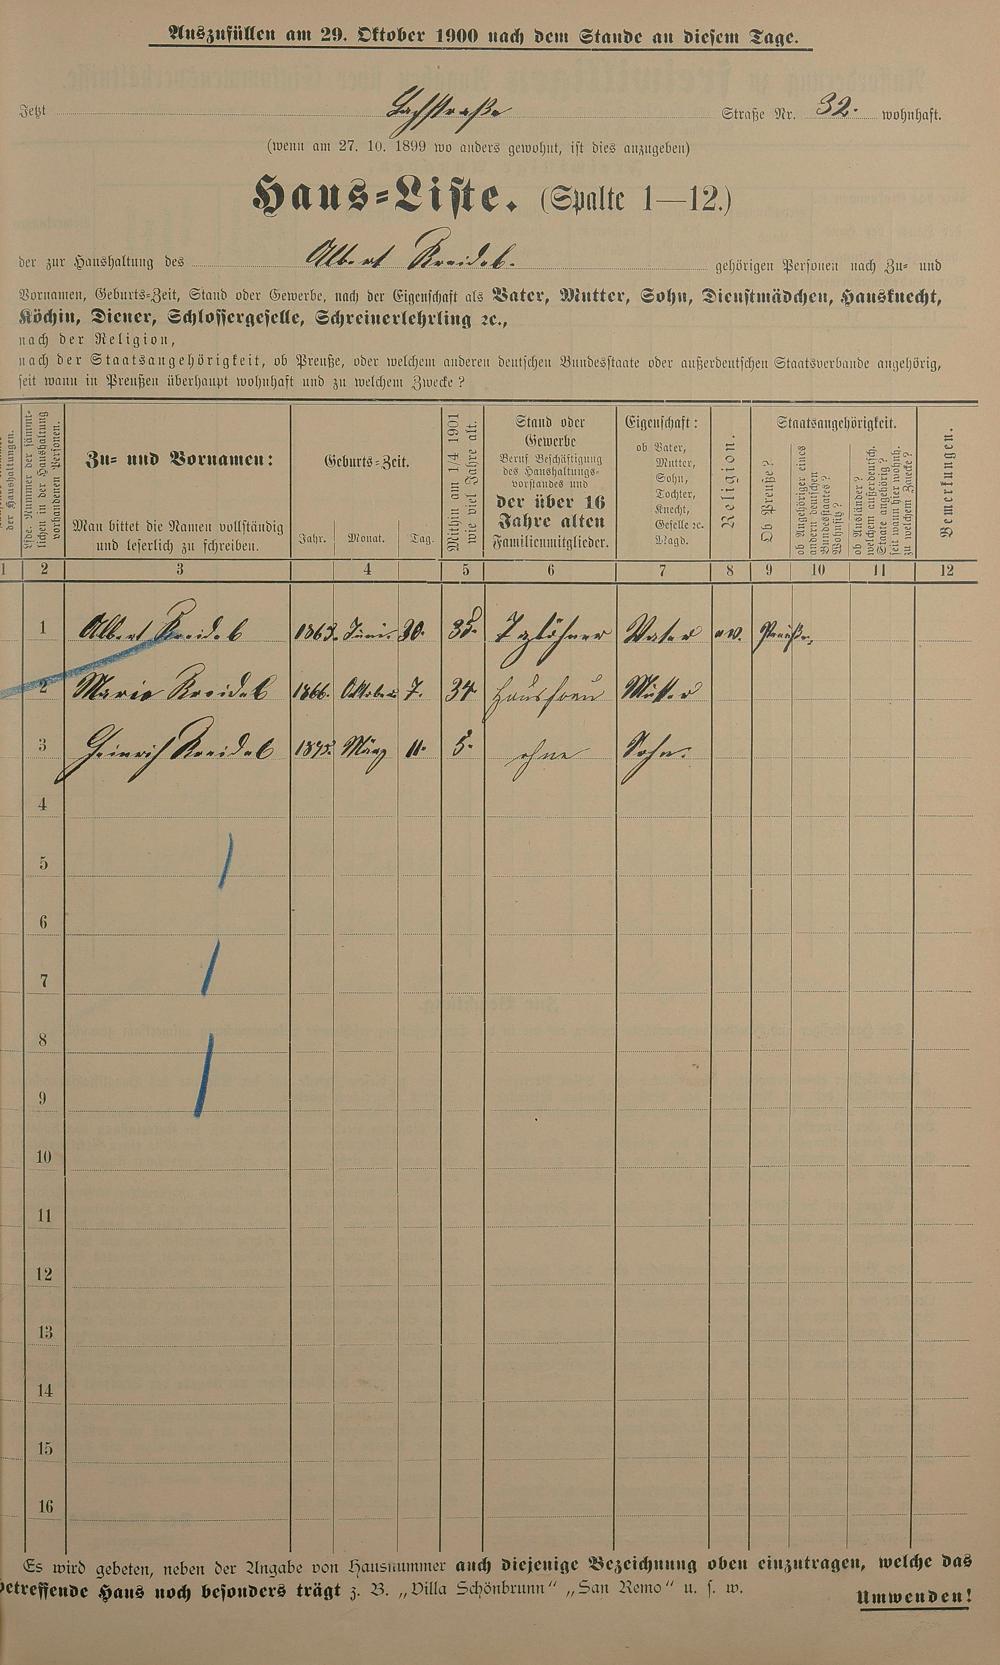 Auszufüllen am 29. Oktober 1900 nach dem Stande an diesem Tage.
Jetzt Lachstraße Straße Nr. 32. wohnhaft.
(wenn am 27. 10. 1899 wo anders gewohnt, ist dies anzugeben)
Haus-Liste. (Spalte 1—12.)
der zur Haushaltung des Albert Kreidel. gehörigen Personen nach Zu- und
Vornamen, Geburts-Zeit, Stand oder Gewerbe, nach der Eigenschaft als Vater, Mutter, Sohn, Dienstmädchen, Hausknecht,
Köchin, Diener, Schlossergeselle, Schreinerlehrling ꝛc.,
nach der Religion,
nach der Staatsangehörigkeit, ob Preuße, oder welchem anderen deutschen Bundesstaate oder außerdeutschen Staatsverbande angehörig,
seit wann in Preußen überhaupt wohnhaft und zu welchem Zwecke?
der Haushaltungen.
Lfde. Nummer der sämmt-
lichen in der Haushaltung
vorhandenen Personen.
Zu- und Vornamen:
Man bittet die Namen vollständig
und leserlich zu schreiben.
Geburts-Zeit.
Jahr. Monat. Tag.
Mithin am 1/4 1901
wie viel Jahre alt.
Stand oder
Gewerbe
Beruf Beschäftigung
des Haushaltungs-
vorstandes und
der über 16
Jahre alten
Familienmitglieder.
Eigenschaft:
ob Vater,
Mutter,
Sohn,
Tochter,
Knecht,
Geselle ꝛc.
Magd.
Religion.
Staatsangehörigkeit.
Ob Preuße?
ob Angehöriger eines
andern deutschen
Bundesstaates?
Wohnsitz?
ob Ausländer?
welchem außerdeutsch.
Staate angehörig?
seit wann hier wohnh.
zu welchem Zwecke?
Bemerkungen.
1 2 3 4 5 6 7 8 9 10 11 12
1 Albert Kreidel Juni. 30. 35. Taglöhner Vater ev. Preuße.
2 Marie Kreidel 1866. Oktober 7. 34 Hausfrau Mutter
3 Heinrich Kreidel 1895. März 11. 5. ohne Sohn.
4
5
6
7
8
9
10
11
12
13
14
15
16
Es wird gebeten, neben der Angabe von Hausnummer auch diejenige Bezeichnung oben einzutragen, welche das
betreffende Haus noch besonders trägt z. B. „Villa Schönbrunn“ „San Remo“ u. s. w.
Umwenden!